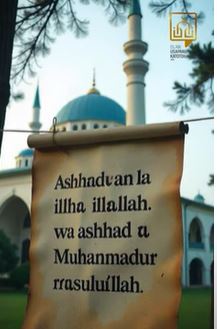 Ashhadu an la
illha illallah.
wa ashhad a
Muhanmadur
rrasulullah.